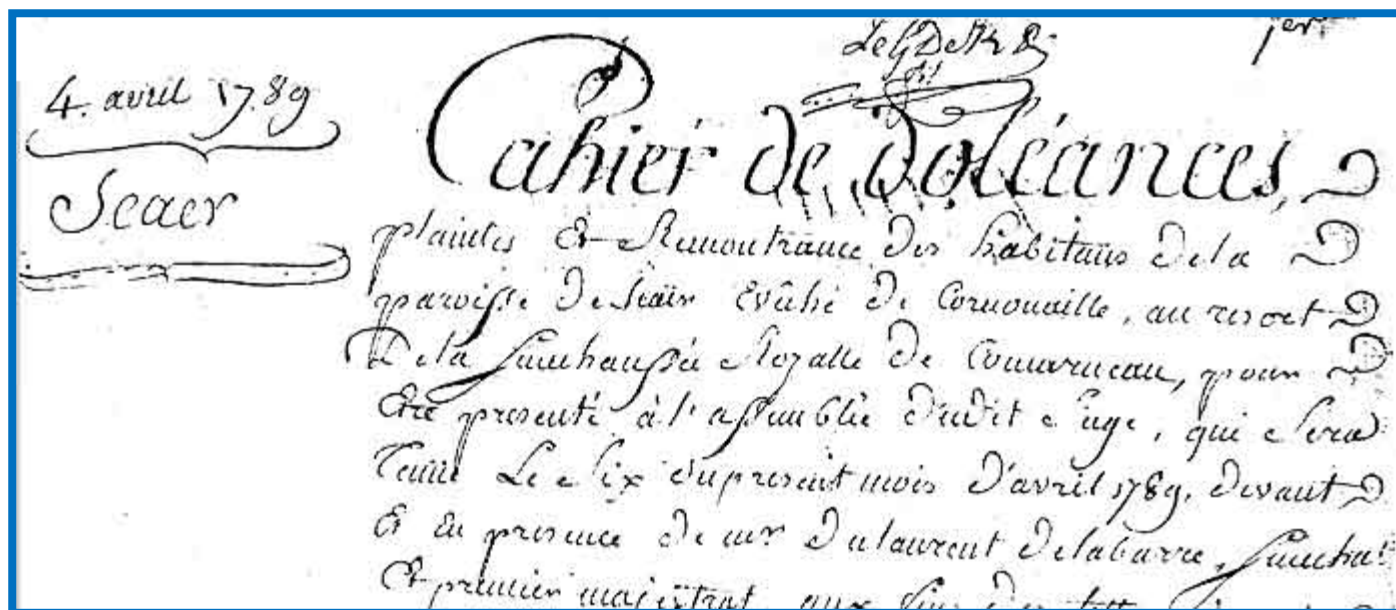 4. avril 1789
Scaer
jer
Cahier de doléances,
plaintes Et Remontrance des habitans de la
paroisse de Scäer Evêché de Cornouaille, au resort
De la Sénéchaussée Royalle de Concarneau, pour
Etre presenté à l'assemblée dudit Siege, qui Sera
Tenue Le Six du present mois d'avril 1789. devant
Et En presence de mr. Dulaurent Delabarre, Sénéchal
Et premier magistrat, aux fins des